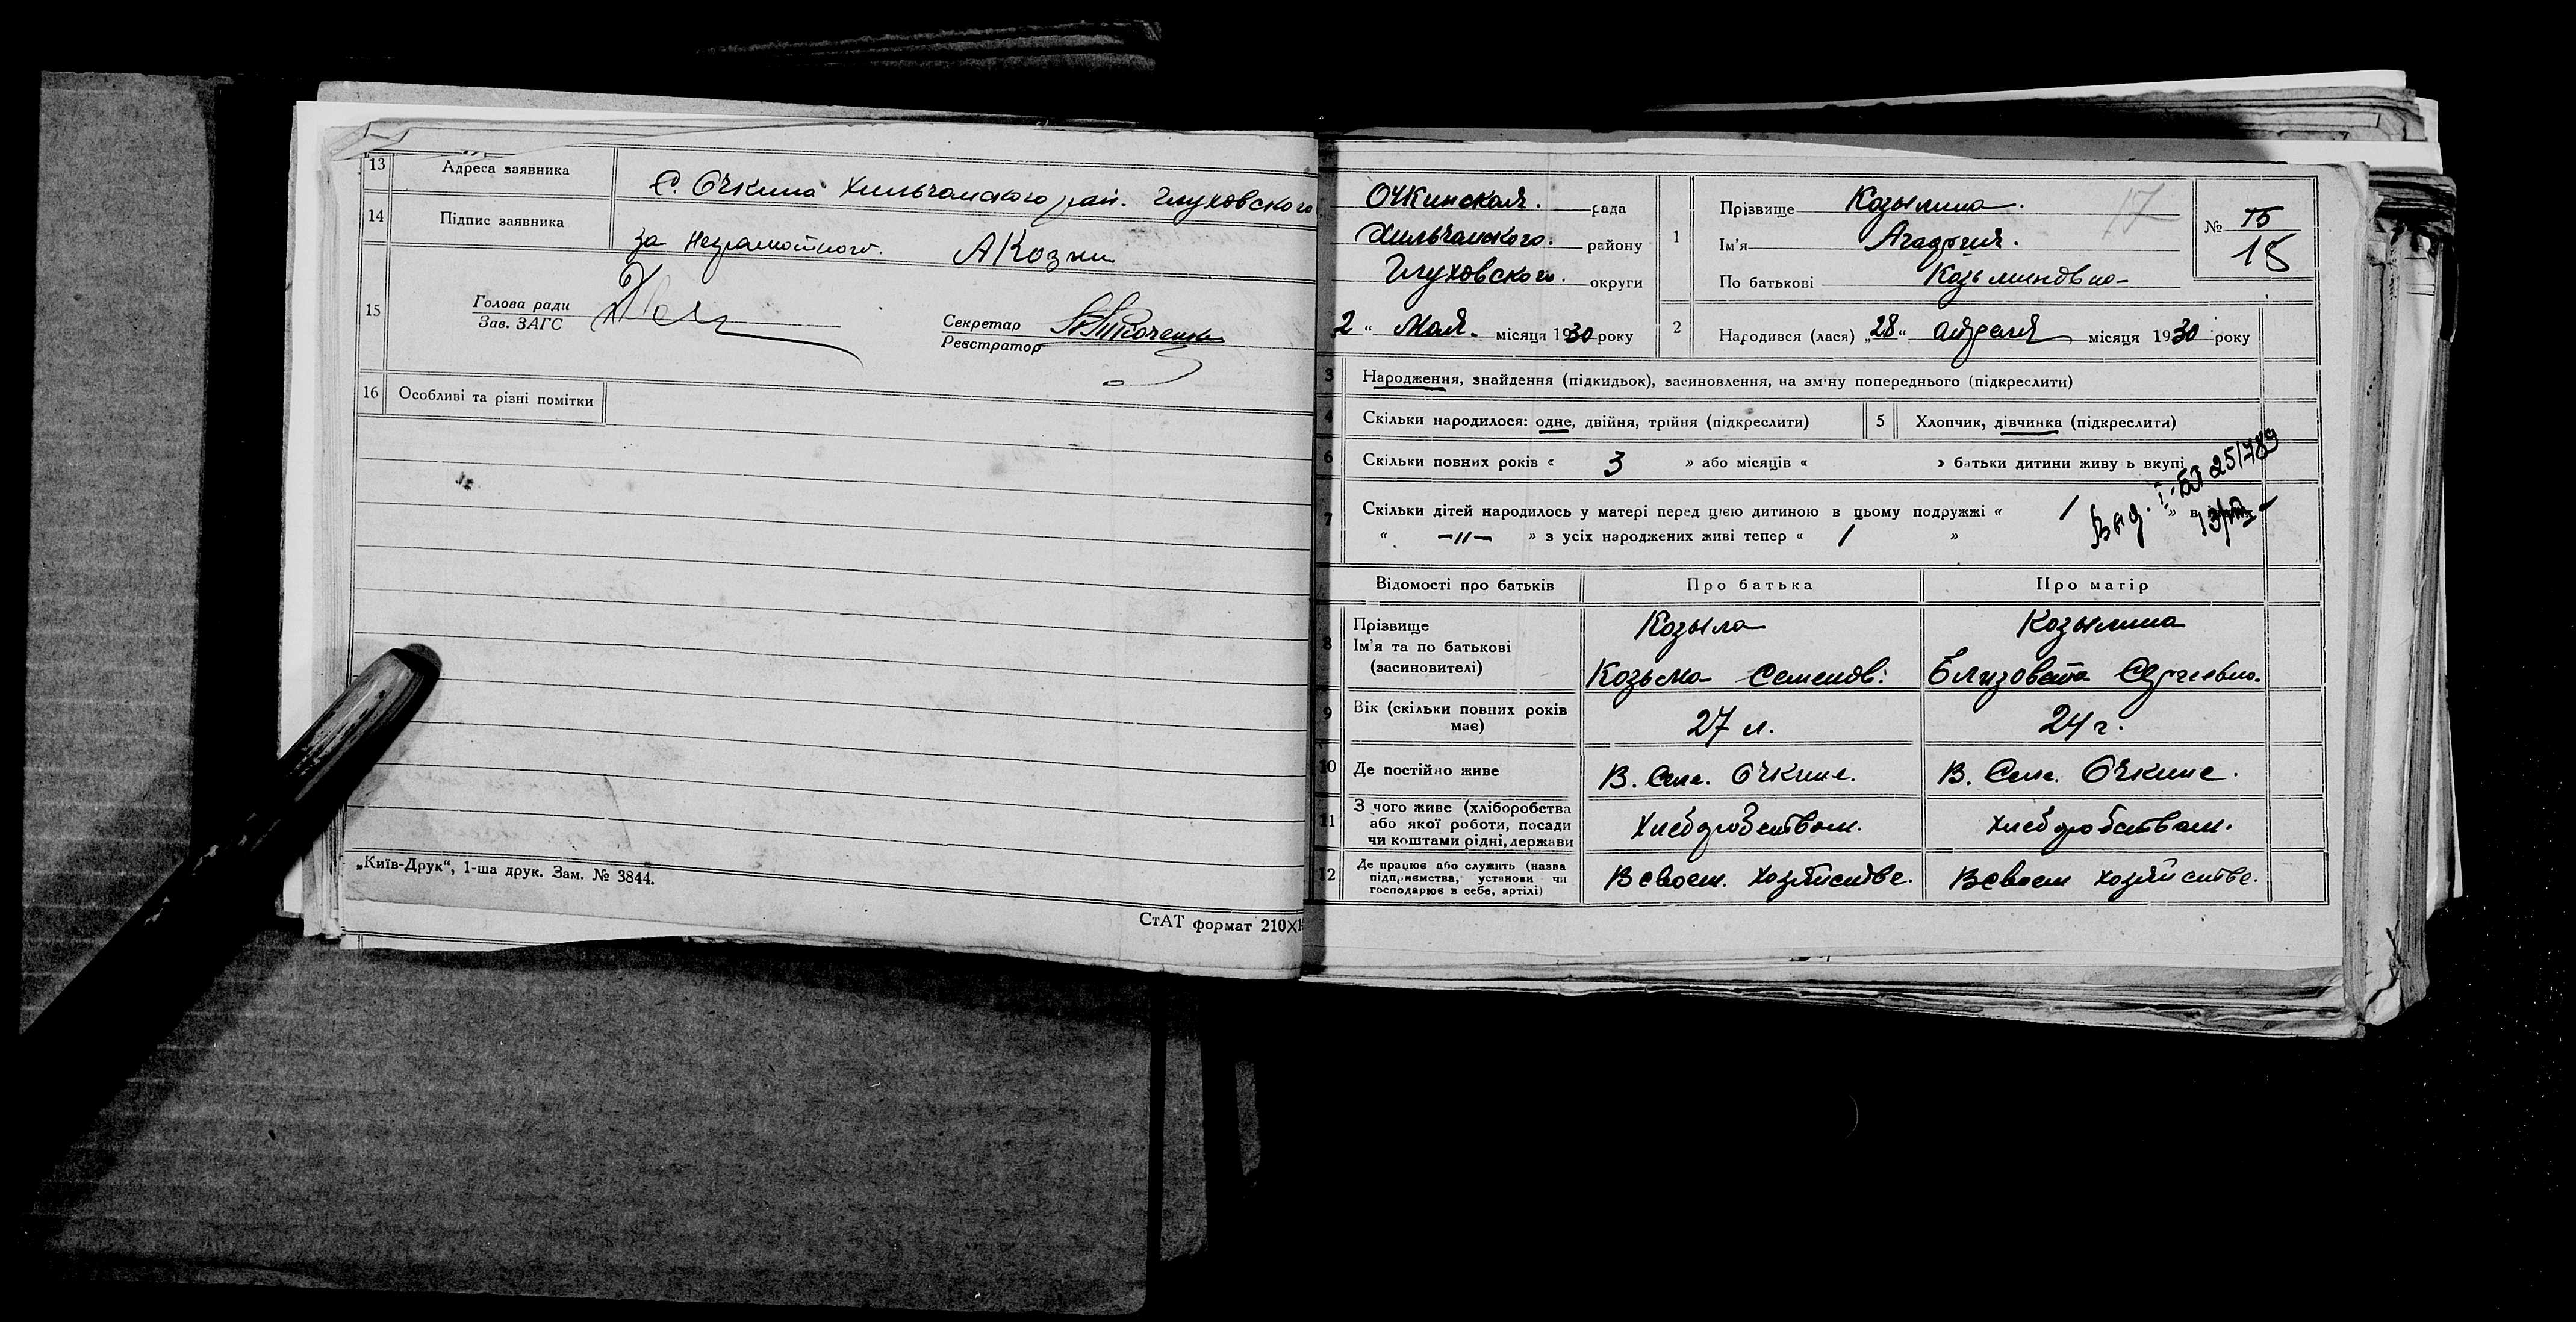 13 Адреса заявника С. Очкина Хильчанского рай. Глуховского
14 Підпис заявника за неграмотного. А Козил
15 Голова ради
Зав. ЗАГС
Секретар
Реєстратор
16 Особливі та різні помітки
„Київ-Друк“, 1-ша друк. Зам. № 3844.
СтАТ формат 210×1
Очкинская. рада
Хильчанского. району
Глуховского. округи
2 “ Мая. місяця 1930 року
1 Прізвище Козылина. 17
Ім'я
По батькові Козьминовна
№ 15
15
2 Народився (лася) „28“ апреля місяця 1930 року
3 Народження, знайдення (підкидьок), засиновлення, на зміну попереднього (підкреслити)
4 Скільки народилося: одне, двійня, трійня (підкреслити)
5 Хлопчик, дівчинка (підкреслити)
6 Скільки повних років « 3 » або місяців « » батьки дитини живу ь вкупі
7 Скільки дітей народилось у матері перед цією дитиною в цьому подружжі « 1 » в
« —〃— » з усіх народжених живі тепер « 1 »
Выд. I-БЛ 25/789
Відомості про батьків Про батька Про матір
8 Прізвище
Ім'я та по батькові
(засиновителі)
Козыла
Козьма Семенов.
Козылина
Елизовета Сергеевна.
9 Вік (скільки повних років
має)
27 л.
24 г.
10 Де постійно живе В. Селе. Очкине. В. Селе. Очкине.
11 З чого живе (хліборобства
або якої роботи, посади
чи коштами рідні, держави
Хлебороbством.
хлеборобством.
12 Де працює або служить (назва
підприємства, установи чи
господарює в себе, артілі)
В своем. хозяйстве.
В своем хозяйстве.